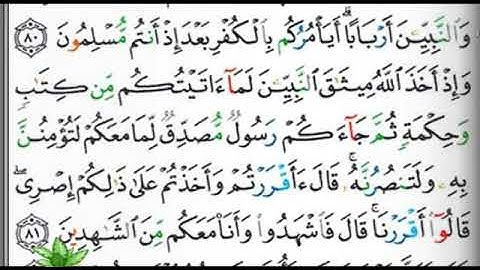 وَالنَّبِيِّـۧنَ أَرْبَابًا ۗ أَيَأْمُرُكُم بِالْكُفْرِ بَعْدَ إِذْ أَنتُم مُّسْلِمُونَ ٨٠
وَإِذْ أَخَذَ اللَّهُ مِيثَٰقَ النَّبِيِّـۧنَ لَمَآ ءَاتَيْتُكُم مِّن كِتَٰبٍ
وَحِكْمَةٍ ثُمَّ جَآءَكُمْ رَسُولٌ مُّصَدِّقٌ لِّمَا مَعَكُمْ لَتُؤْمِنُنَّ
بِهِۦ وَلَتَنصُرُنَّهُۥ ۚ قَالَ ءَأَقْرَرْتُمْ وَأَخَذْتُمْ عَلَىٰ ذَٰلِكُمْ إِصْرِى ۖ
قَالُوٓا۟ أَقْرَرْنَا ۚ قَالَ فَاشْهَدُوا۟ وَأَنَا۠ مَعَكُم مِّنَ الشَّٰهِدِينَ ٨١